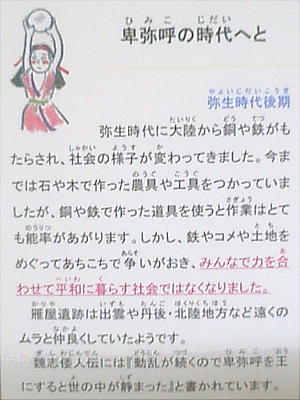 卑弥呼の時代へと
弥生時代後期
弥生時代に大陸から銅や鉄がも
たらされ、社会の様子が変わってきました。今ま
では石や木で作った農具や工具をつかっていま
したが、銅や鉄で作った道具を使うと作業はとて
も能率があがります。しかし、鉄やコメや土地を
めぐってあちこちで争いがおき、みんなで力を合
わせて平和に暮らす社会ではなくなりました。
雁屋遺跡は出雲や丹後・北陸地方など遠くの
ムラと仲良くしていたようです。
魏志倭人伝には『動乱が続くので卑弥呼を王
にすると世の中が静まった』と書かれています。